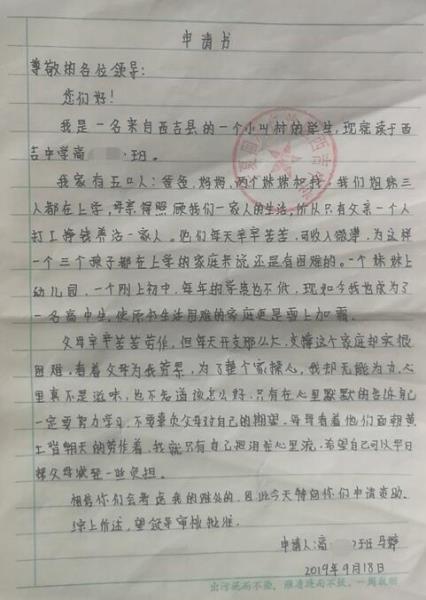 申请书
尊敬的各位领导:
您们好!
我是一名来自西吉县的一个小山村的学生,现就读于西
吉中学高 班。
我家有五口人:爸爸,妈妈,两个妹妹和我,我们姐妹三
人都在上学,母亲得照顾我们一家人的生活,所以只有父亲一个人
打工挣钱养活一家人。他们每天辛辛苦苦,可收入微薄,为这样
一个三个孩子都在上学的家庭来说还是有困难的。一个妹妹上
幼儿园,一个刚上初中,每年的学费也不低,现如今我也成为了
一名高中生,使原本生活困难的家庭更是雪上加霜。
父母辛辛苦苦劳作,但每天开支那么大,支撑这个家庭却实很
困难,看着父母为我劳累,为了整个家操心,我却无能为力,心
里真不是滋味,也不知道该怎么办,只有在心里默默的告诉自己
一定要努力学习,不要辜负父母对自己的期望,每每看着他们面朝黄
土背朝天的劳作着,我就只有自己把泪往心里流,希望自己可以早日
替父母减轻一些负担。
相信你们会考虑我的难处的,因此今天特向你们申请资助。
综上所述,望领导审核批准。
申请人:高 班 马婷
2019年9月18日
出污泥而不染,濯清涟而不妖。—周敦颐